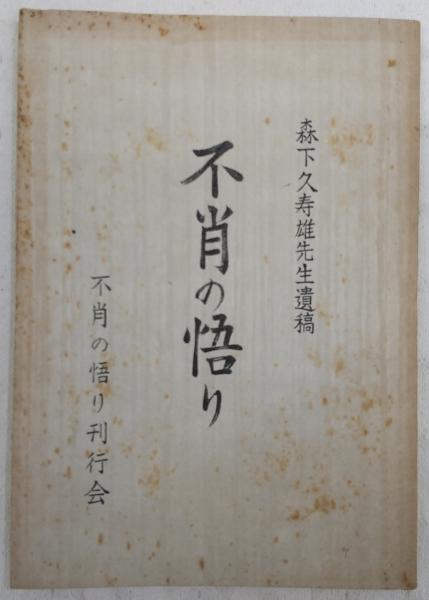 森下久寿雄先生遺稿
不肖の悟り
不肖の悟り刊行会